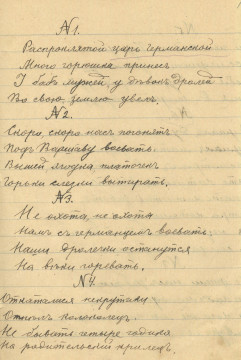 №1.
Распроклятой царь германской
Много горюшка принес
I бабъ мужей, у дѣвокъ дроля
Во свою землю увез.
№2.
Скоро, скоро насъ погонятъ
Подъ Варшаву воевать.
Вышей ягодка платочек
Горьки слезки вытирать.
№3.
Не охота, не охота
Намъ с германцемъ воевать
Наши дролечки останутся
На вѣки горевать.
№4.
Откатался некрутики
Отпѣлъ колоколецъ.
Не бывать четыре годика
На родительский крылецъ.